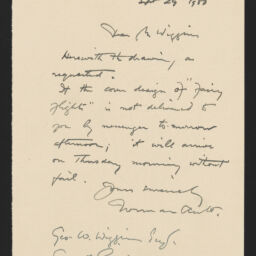 Sept 29 1908
Dear Mr Wiggins
Herewith the drawing, as
requested.
If the cover design of "Fairy
flights" is not delivered to
you by messenger to-morrow
afternoon, it will arrive
on Thursday morning without
fail.
Yours sincerely
Norman
Geo. W. Wiggins Esq.